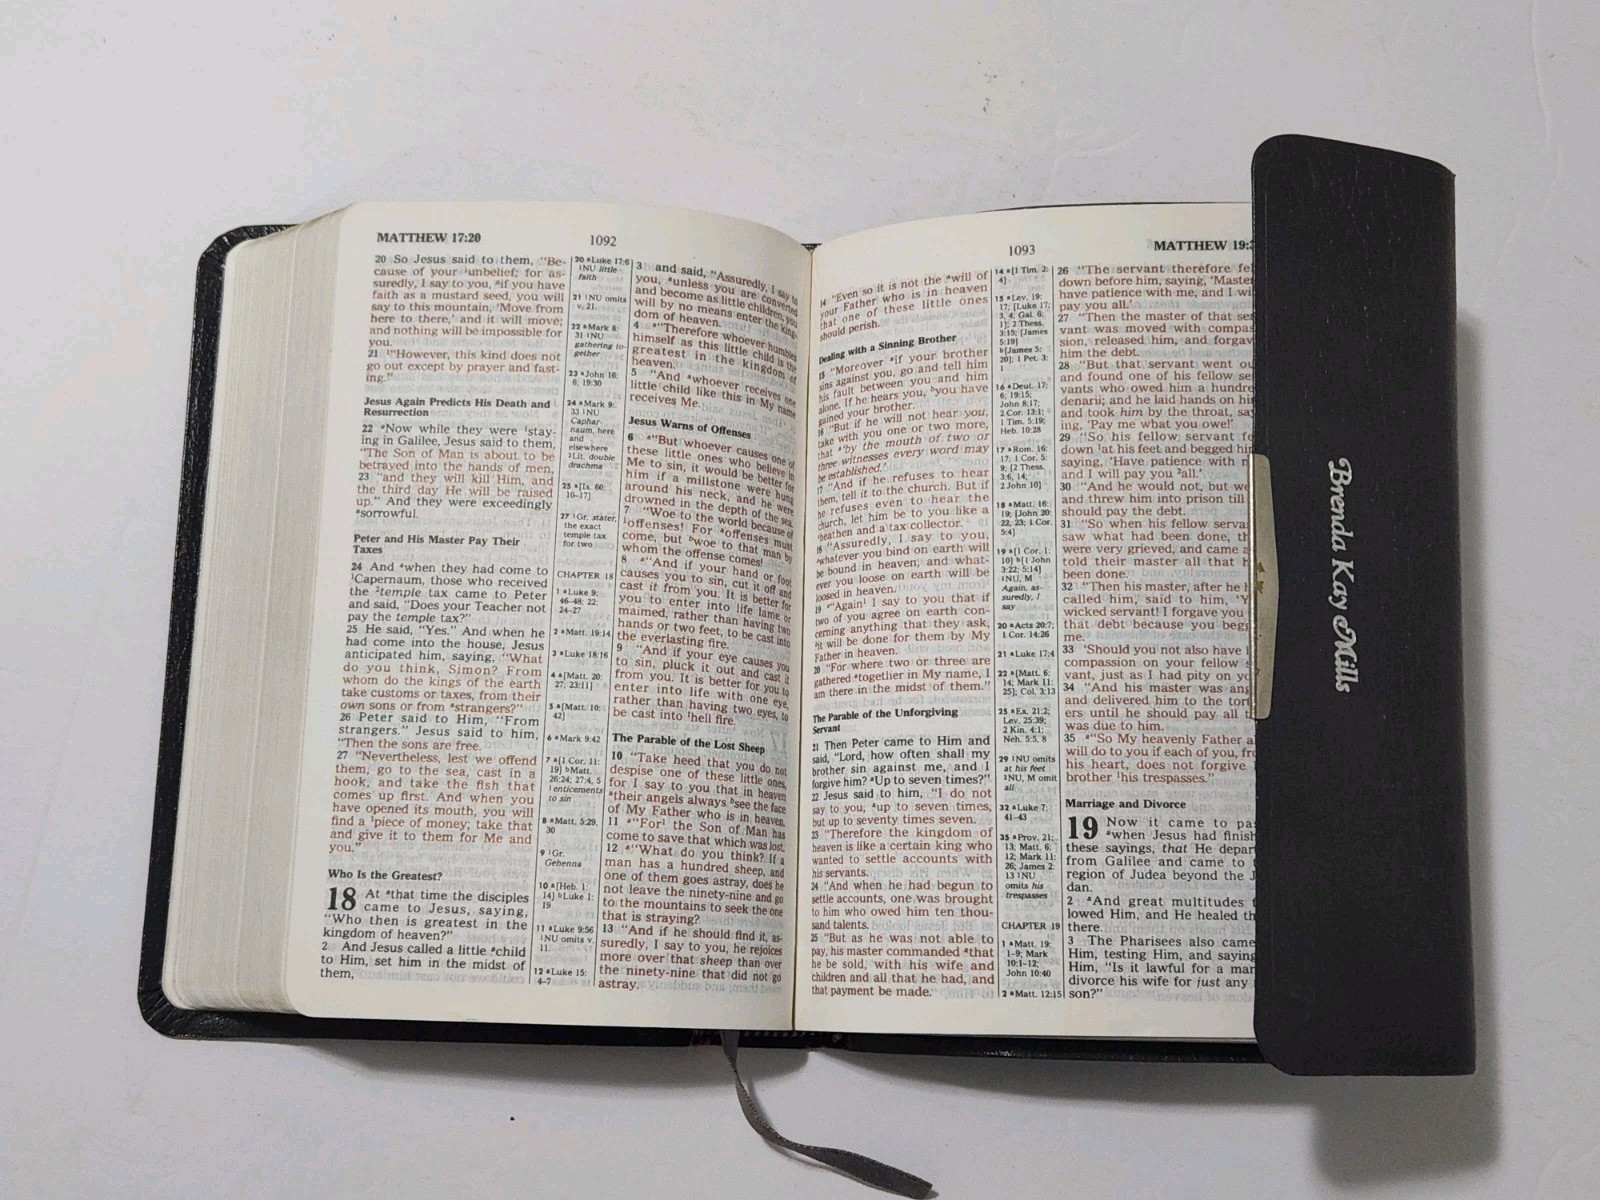 MATTHEW 17:20
1092
20 So Jesus said to them, "Be-
cause of your ¹unbelief; for as-
suredly, I say to you, ᵃif you have
faith as a mustard seed, you will
say to this mountain, 'Move from
here to there,' and it will move;
and nothing will be impossible for
you.
21 ¹"However, this kind does not
go out except by prayer and fast-
ing."
Jesus Again Predicts His Death and
Resurrection
22 ᵃNow while they were ¹stay-
ing in Galilee, Jesus said to them,
"The Son of Man is about to be
betrayed into the hands of men,
23 "and they will kill Him, and
the third day He will be raised
up." And they were exceedingly
ᵃsorrowful.
Peter and His Master Pay Their
Taxes
24 And ᵃwhen they had come to
¹Capernaum, those who received
the ²temple tax came to Peter
and said, "Does your Teacher not
pay the temple tax?"
25 He said, "Yes." And when he
had come into the house, Jesus
anticipated him, saying, "What
do you think, Simon? From
whom do the kings of the earth
take customs or taxes, from their
own sons or from ᵃstrangers?"
26 Peter said to Him, "From
strangers." Jesus said to him,
"Then the sons are free.
27 "Nevertheless, lest we offend
them, go to the sea, cast in a
hook, and take the fish that
comes up first. And when you
have opened its mouth, you will
find a ¹piece of money; take that
and give it to them for Me and
you."
Who Is the Greatest?
18 At ᵃthat time the disciples
came to Jesus, saying,
"Who then is greatest in the
kingdom of heaven?"
2 And Jesus called a little ᵃchild
to Him, set him in the midst of
them,
20 ᵃLuke 17:6
¹NU little
faith
21 ¹NU omits
v. 21.
22 ᵃMark 8:
31 ¹NU
gathering to-
gether
23 ᵃJohn 16:
6; 19:30
24 ᵃMark 9:
33 ¹NU
Caphar-
naum, here
and
elsewhere
²Lit. double
drachma
25 ᵃ[Is. 60:
10–17]
27 ¹Gr. stater,
the exact
temple tax
for two
CHAPTER 18
1 ᵃLuke 9:
46–48; 22:
24–27
2 ᵃMatt. 19:14
3 ᵃLuke 18:16
4 ᵃ[Matt. 20:
27; 23:11]
5 ᵃ[Matt. 10:
42]
6 ᵃMark 9:42
7 ᵃ[1 Cor. 11:
19] ᵇMatt.
26:24; 27:4, 5
¹enticements
to sin
8 ᵃMatt. 5:29,
30
9 ¹Gr.
Gehenna
10 ᵃ[Heb. 1:
14] ᵇLuke 1:
19
11 ᵃLuke 9:56
¹NU omits v.
11.
12 ᵃLuke 15:
4–7
3 and said, "Assuredly, I say to
you, ᵃunless you are converted
and become as little children, you
will by no means enter the king-
dom of heaven.
4 ᵃ"Therefore whoever humbles
himself as this little child is the
greatest in the kingdom of
heaven.
5 "And ᵃwhoever receives one
little child like this in My name
receives Me.
Jesus Warns of Offenses
6 ᵃ"But whoever causes one of
these little ones who believe in
Me to sin, it would be better for
him if a millstone were hung
around his neck, and he were
drowned in the depth of the sea.
7 "Woe to the world because of
¹offenses! For ᵃoffenses must
come, but ᵇwoe to that man by
whom the offense comes!
8 ᵃ"And if your hand or foot
causes you to sin, cut it off and
cast it from you. It is better for
you to enter into life lame or
maimed, rather than having two
hands or two feet, to be cast into
the everlasting fire.
9 "And if your eye causes you
to sin, pluck it out and cast it
from you. It is better for you to
enter into life with one eye,
rather than having two eyes, to
be cast into ¹hell fire.
The Parable of the Lost Sheep
10 "Take heed that you do not
despise one of these little ones,
for I say to you that in heaven
ᵃtheir angels always ᵇsee the face
of My Father who is in heaven.
11 ᵃ"For¹ the Son of Man has
come to save that which was lost.
12 ᵃ"What do you think? If a
man has a hundred sheep, and
one of them goes astray, does he
not leave the ninety-nine and go
to the mountains to seek the one
that is straying?
13 "And if he should find it, as-
suredly, I say to you, he rejoices
more over that sheep than over
the ninety-nine that did not go
astray.
1093
MATTHEW 19:3
14 "Even so it is not the ᵃwill of
your Father who is in heaven
that one of these little ones
should perish.
Dealing with a Sinning Brother
15 "Moreover ᵃif your brother
sins against you, go and tell him
his fault between you and him
alone. If he hears you, ᵇyou have
gained your brother.
16 "But if he will not hear you,
take with you one or two more,
that ᵃ'by the mouth of two or
three witnesses every word may
be established.'
17 "And if he refuses to hear
them, tell it to the church. But if
he refuses even to hear the
church, let him be to you like a
ᵃheathen and a tax collector.
18 "Assuredly, I say to you,
ᵃwhatever you bind on earth will
be bound in heaven, and what-
ever you loose on earth will be
loosed in heaven.
19 ᵃ"Again¹ I say to you that if
two of you agree on earth con-
cerning anything that they ask,
ᵇit will be done for them by My
Father in heaven.
20 "For where two or three are
gathered ᵃtogether in My name, I
am there in the midst of them."
The Parable of the Unforgiving
Servant
21 Then Peter came to Him and
said, "Lord, how often shall my
brother sin against me, and I
forgive him? ᵃUp to seven times?"
22 Jesus said to him, "I do not
say to you, ᵃup to seven times,
but up to seventy times seven.
23 "Therefore the kingdom of
heaven is like a certain king who
wanted to settle accounts with
his servants.
24 "And when he had begun to
settle accounts, one was brought
to him who owed him ten thou-
sand talents.
25 "But as he was not able to
pay, his master commanded ᵃthat
he be sold, with his wife and
children and all that he had, and
that payment be made.
14 ᵃ[1 Tim. 2:
4]
15 ᵃLev. 19:
17; [Luke 17:
3, 4; Gal. 6:
1]; 2 Thess.
3:15; [James
5:19]
ᵇ[James 5:
20]; 1 Pet. 3:
1
16 ᵃDeut. 17:
6; 19:15;
John 8:17;
2 Cor. 13:1;
1 Tim. 5:19;
Heb. 10:28
17 ᵃRom. 16:
17; 1 Cor. 5:
9; [2 Thess.
3:6, 14;
2 John 10]
18 ᵃMatt. 16:
19; [John 20:
22, 23; 1 Cor.
5:4]
19 ᵃ[1 Cor. 1:
10] ᵇ[1 John
3:22; 5:14]
¹NU, M
Again, as-
suredly, I
say
20 ᵃActs 20:7;
1 Cor. 14:26
21 ᵃLuke 17:4
22 ᵃ[Matt. 6:
14; Mark 11:
25]; Col. 3:13
25 ᵃEx. 21:2;
Lev. 25:39;
2 Kin. 4:1;
Neh. 5:5, 8
29 ¹NU omits
at his feet
²NU, M omit
all
32 ᵃLuke 7:
41–43
35 ᵃProv. 21:
13; Matt. 6:
12; Mark 11:
26; James 2:
13 ¹NU
omits his
trespasses
CHAPTER 19
1 ᵃMatt. 19:
1–9; Mark
10:1–12;
John 10:40
2 ᵃMatt. 12:15
26 "The servant therefore fe
down before him, saying, 'Master
have patience with me, and I wi
pay you all.'
27 "Then the master of that se
vant was moved with compas
sion, released him, and forgav
him the debt.
28 "But that servant went ou
and found one of his fellow se
vants who owed him a hundre
denarii; and he laid hands on hi
and took him by the throat, sa
ing, 'Pay me what you owe!'
29 "So his fellow servant fe
down ¹at his feet and begged hi
saying, 'Have patience with m
and I will pay you ²all.'
30 "And he would not, but we
and threw him into prison till
should pay the debt.
31 "So when his fellow serva
saw what had been done, th
were very grieved, and came a
told their master all that h
been done.
32 "Then his master, after he
called him, said to him, 'Y
wicked servant! I forgave you
that debt because you begg
me.
33 'Should you not also have
compassion on your fellow s
vant, just as I had pity on yo
34 "And his master was ang
and delivered him to the tort
ers until he should pay all t
was due to him.
35 ᵃ"So My heavenly Father a
will do to you if each of you, fr
his heart, does not forgive
brother ¹his trespasses."
Marriage and Divorce
19 Now it came to pa
ᵃwhen Jesus had finish
these sayings, that He depar
from Galilee and came to
region of Judea beyond the J
dan.
2 ᵃAnd great multitudes f
lowed Him, and He healed th
there.
3 The Pharisees also came
Him, testing Him, and saying
Him, "Is it lawful for a man
divorce his wife for just any
son?"
Brenda Kay Mills